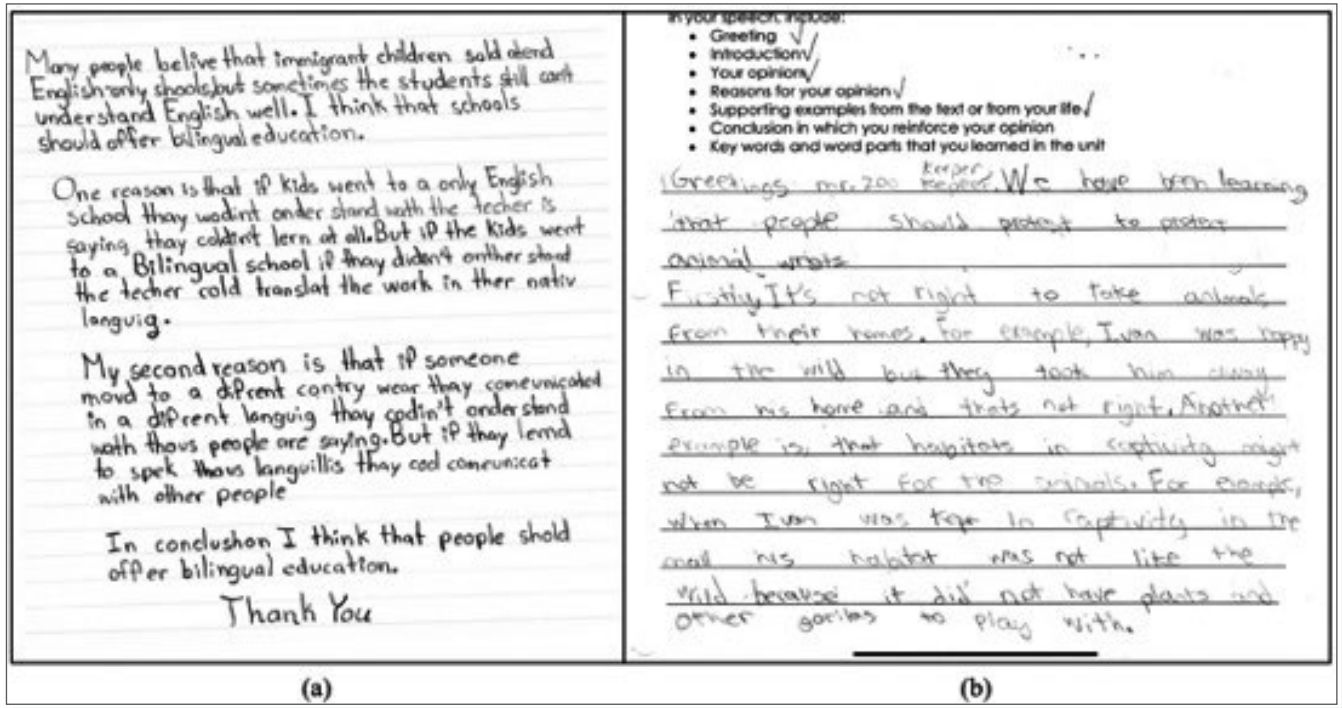 Many people belive that immigrant children sold atend
English only shools, but sometimes the students still can't
understand English well. I think that schools
should offer bilingual education.
One reason is that if kids went to a only English
school thay wodint onder stand wath the techer is
saying, thay coldint lern at all. But if the kids went
to a Bilingual school if thay diden't onther stand
the techer cold translat the work in ther nativ
languig.
My second reason is that if someone
movd to a difrent contry wear thay comeunicated
in a difrent languig thay codin't onder stand
wath thous people are saying. But if thay lernd
to spek thous languillis thay cod comeunicat
with other people
In conclushon I think that people shold
offer bilingual education.
Thank You
(a)
In your speech, include:
• Greeting ✓
• Introduction ✓
• Your opinion ✓
• Reasons for your opinion ✓
• Supporting examples from the text or from your life ✓
• Conclusion in which you reinforce your opinion
• Key words and word parts that you learned in the unit
keeper
Greetings mr. zoo We have ben learning
that people should protest to protect
animal wrihts
Firstly, It's not right to take animals
From their homes. For exemple, Ivan was happy
in the wild but they took him away
From his home and thats not right. Another
example is, that habitats in captivity might
not be right for the animals. For example,
when Ivan was kept in captivity in the
mall his habitat was not like the
wild because it did not have plants and
other gorilas to play with.
(b)